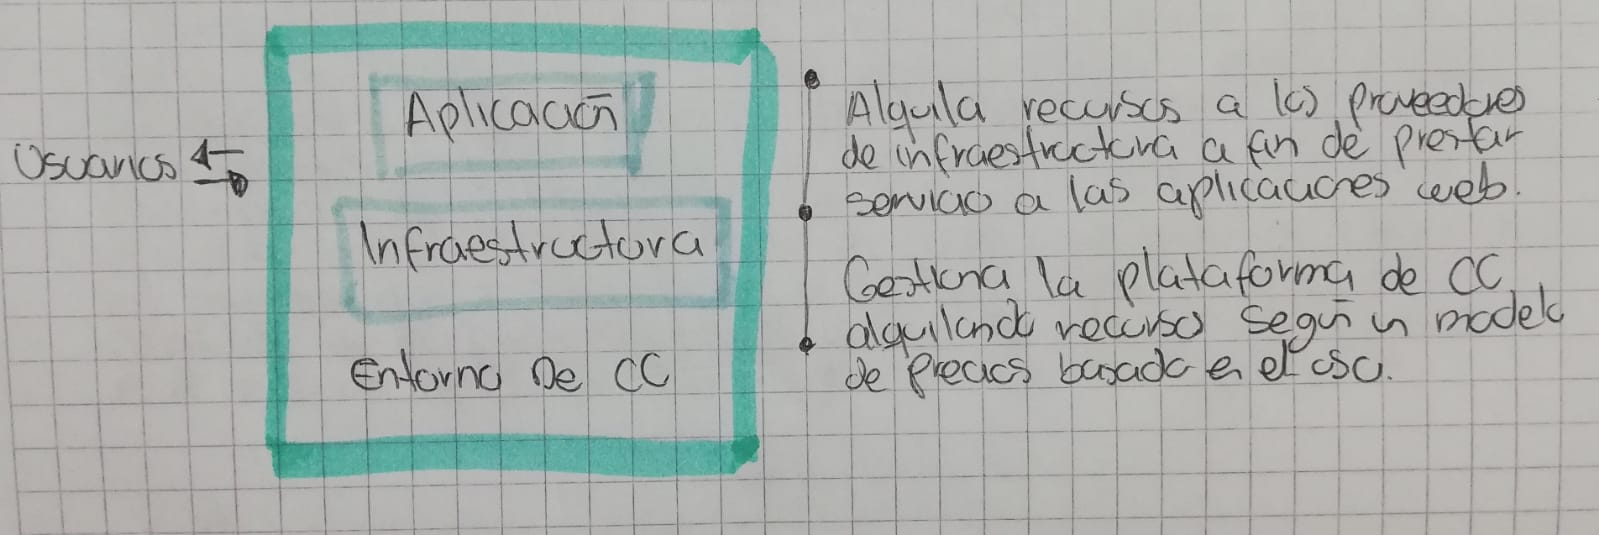 Usuarios
Aplicación
Infraestructura
Entorno De CC
Alquila recursos a los proveedores
de infraestructura a fin de prestar
servicio a las aplicaciones web.
Gestiona la plataforma de CC,
alquilando recursos según un modelo
de precios basado en el uso.